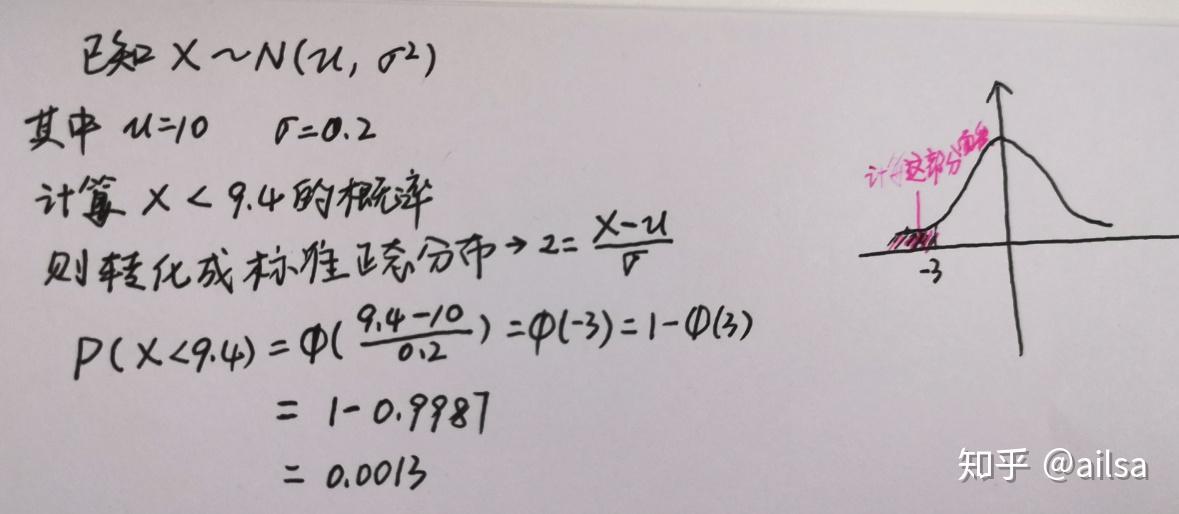 已知 X~N(u, σ²)
其中 u=10 σ=0.2
计算 X < 9.4 的概率
则转化成标准正态分布→ z = (X-u)/σ
P(X<9.4) = Φ((9.4-10)/0.2) = Φ(-3) = 1-Φ(3)
= 1-0.9987
= 0.0013
计算这部分面积
-3
知乎 @ailsa